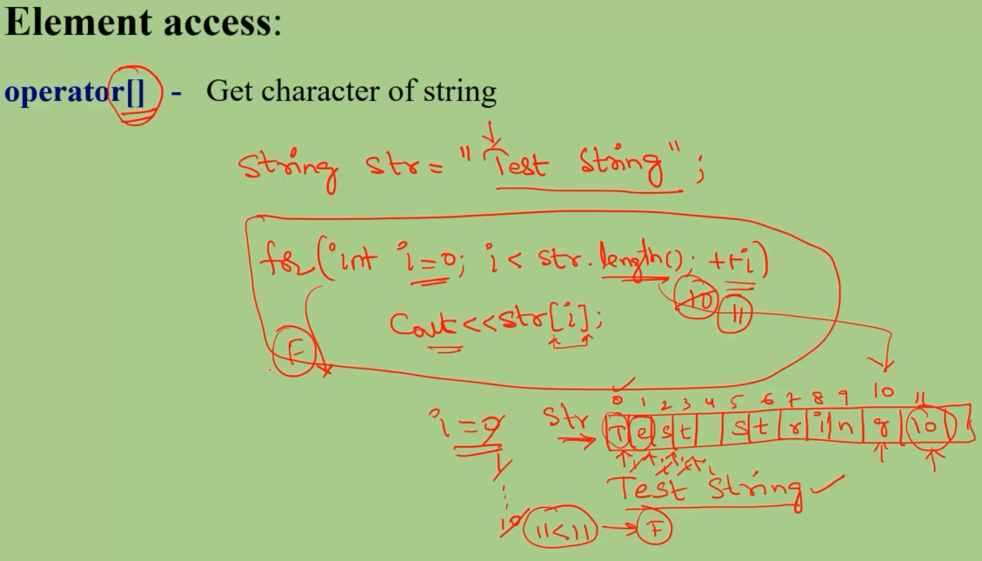 Element access:
operator[] - Get character of string
String str = "Test String";
for(int i=0; i < str.length(); ++i)
10
11
Cout<<str[i];
F
0 1 2 3 4 5 6 7 8 9 10 11
i = 0 str T e s t s t r i n g \0
1
Test String
10 11<11 F